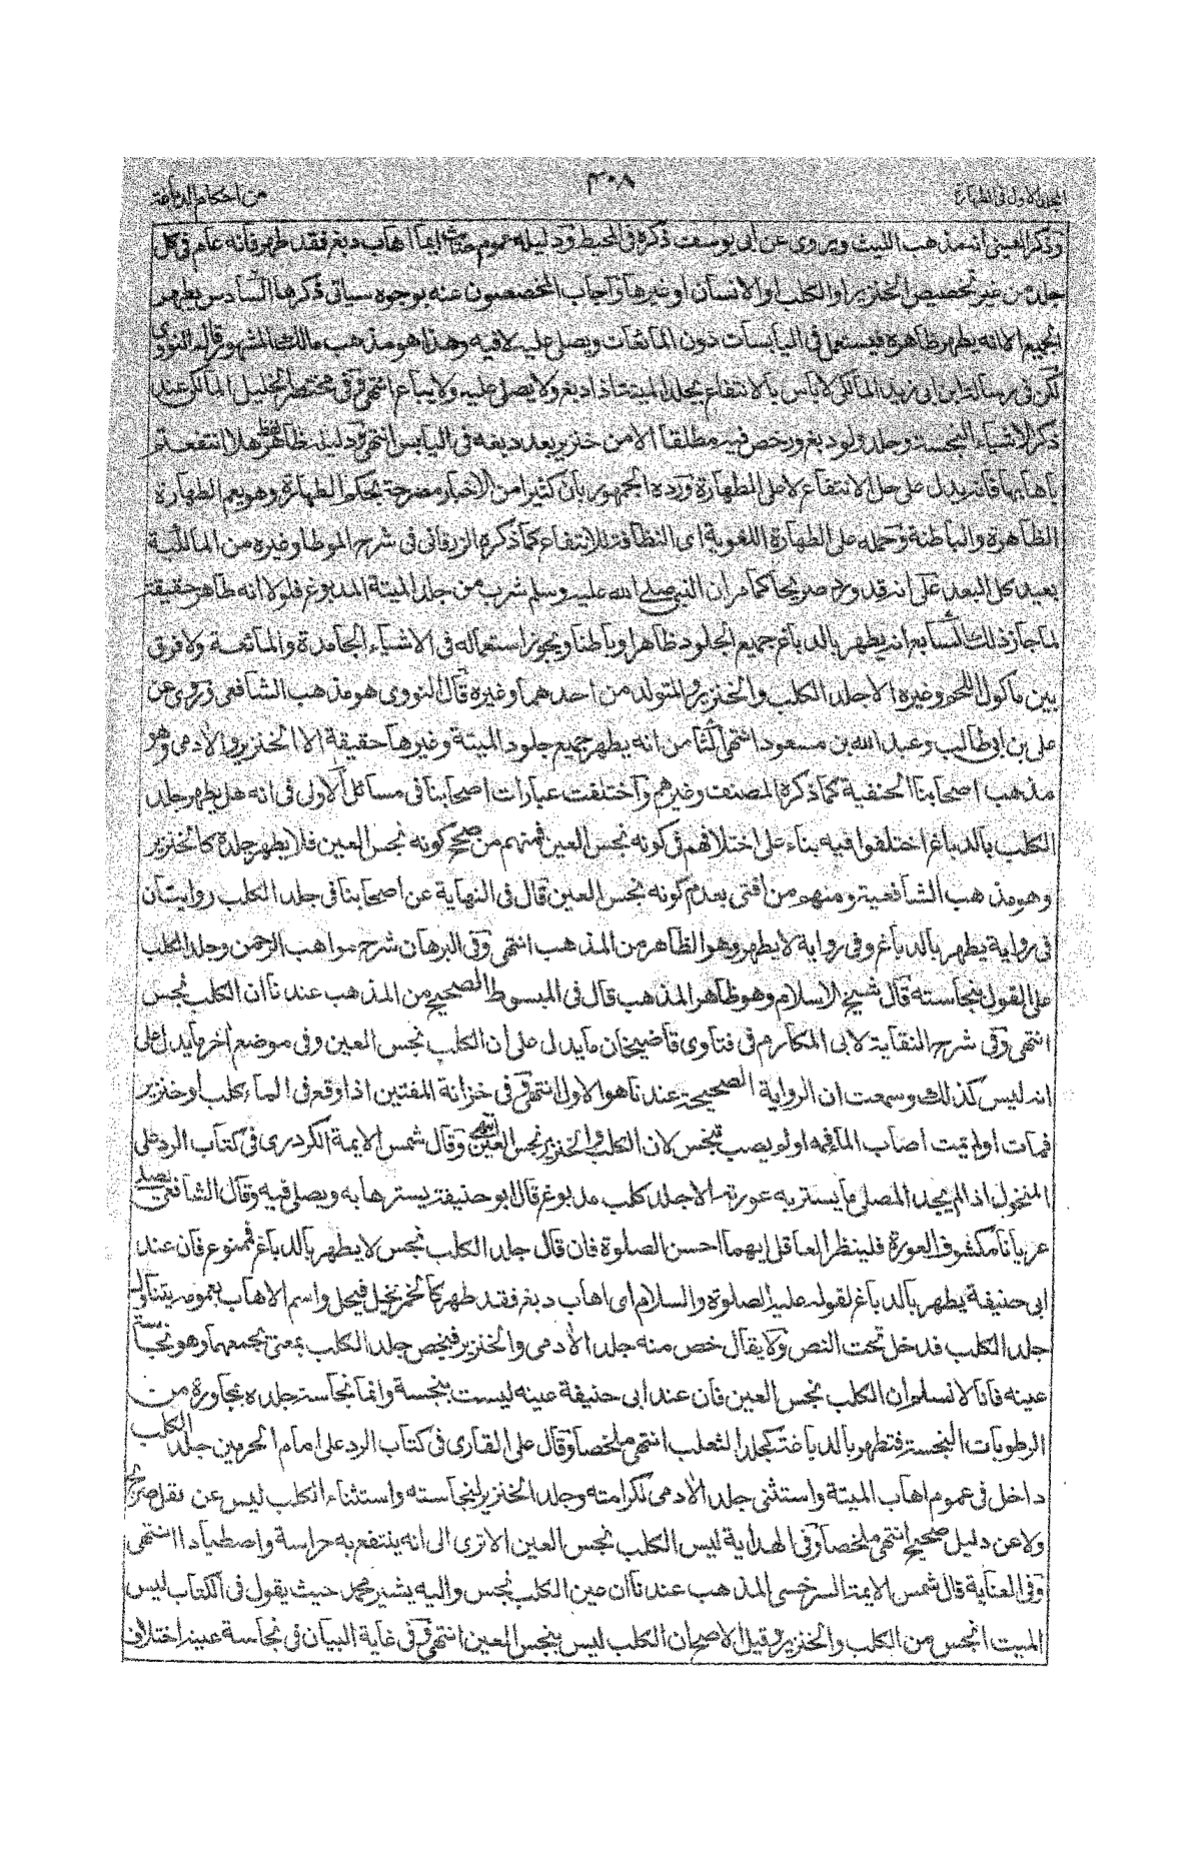 المجلد الاول فى الطهارة
٤٠٨
من احكام الدباغة
وذكر العينى انه مذهب الليث ويروى عن ابى يوسف ذكره فى المحيط ودليله عموم حديث ايما اهاب دبغ فقد طهر فانه عام فى كل
جلد من غير تخصيص الخنزير او الكلب او الانسان او غيرها واجاب المخصصون عنه بوجوه سياتى ذكرها السادس يطهر
الجميع الا انه يطهر ظاهره فيستعمل فى اليابسات دون المائعات ويصلى عليه لا فيه وهذا هو مذهب مالك المشهور قاله النووى
لكن فى رسالة ابن ابى زيد المالكى لا باس بالانتفاع بجلد الميتة اذا دبغ ولا يصلى عليه ولا يباع انتهى وفى مختصر الخليل المالكى عند
ذكر الاشياء النجسة وجلد ولو دبغ ورخص فيه مطلقا الا من خنزير بعد دبغه فى اليابس انتهى ودليله ظاهر لفظ هلا انتفعتم
باهابها فانه يدل على حل الانتفاع لا على الطهارة ورده الجمهور بان كثيرا من الاخبار مصرحة بحكم الطهارة وهو يعم الطهارة
الظاهرة والباطنة وحمله على الطهارة اللغوية اى النظافة للانتفاع كما ذكره الزرقانى فى شرح الموطا وغيره من المالكية
بعيد كل البعد على انه قد ورد صريحا كما مر ان النبى صلى الله عليه وسلم شرب من جلد الميتة المدبوغ فلولا انه طاهر حقيقة
لما جاز ذلك السابع انه يطهر بالدباغ جميع الجلود ظاهرا وباطنا ويجوز استعماله فى الاشياء الجامدة والمائعة ولا فرق
بين ماكول اللحم وغيره الا جلد الكلب والخنزير والمتولد من احدهما وغيره قال النووى هو مذهب الشافعى وروى عن
على بن ابى طالب وعبد الله بن مسعود انتهى الثامن انه يطهر جميع جلود الميتة وغيرها حقيقة الا الخنزير والادمى وهو
مذهب اصحابنا الحنفية كما ذكره المصنف وغيرهم واختلفت عبارات اصحابنا فى مسائل الاولى فى انه هل يطهر جلد
الكلب بالدباغ اختلفوا فيه بناء على اختلافهم فى كونه نجس العين فمنهم من صحح كونه نجس العين فلا يطهر جلده كالخنزير
وهو مذهب الشافعية ومنهم من افتى بعدم كونه نجس العين قال فى النهاية عن اصحابنا فى جلد الكلب روايتان
فى رواية يطهر بالدباغ وفى رواية لا يطهر وهو الظاهر من المذهب انتهى وفى البرهان شرح مواهب الرحمن وجلد الكلب
على القول بنجاسته قال شيخ الاسلام وهو ظاهر المذهب قال فى المبسوط الصحيح من المذهب عندنا ان الكلب نجس
انتهى وفى شرح النقاية لابى المكارم فى فتاوى قاضيخان ما يدل على ان الكلب نجس العين وفى موضع اخر ما يدل على
انه ليس كذلك وسمعت ان الرواية الصحيحة عندنا هو الاول انتهى وفى خزانة المفتين اذا وقع فى الماء كلب او خنزير
فمات او لم يمت اصاب الماء فمه او لم يصب تنجس لان الكلب والخنزير نجس العين انتهى وقال شمس الايمة الكردرى فى كتاب الرد على
المنخول اذا لم يجد المصلى ما يستر به عورته الا جلد كلب مدبوغ قال ابو حنيفة يسترها به ويصلى فيه وقال الشافعى يصلى
عريانا مكشوف العورة فلينظر العاقل ايهما احسن الصلوة فان قال جلد الكلب نجس لا يطهر بالدباغ فممنوع فان عند
ابى حنيفة يطهر بالدباغ لقوله عليه الصلوة والسلام اى اهاب دبغ فقد طهر كالخمر تخلل فيحل واسم الاهاب بعمومه يتناول
جلد الكلب فدخل تحت النص ولا يقال خص منه جلد الادمى والخنزير فيخص جلد الكلب بمعنى يجمعهما وهو نجاسة
عينه فانا لا نسلم ان الكلب نجس العين فان عند ابى حنيفة عينه ليست بنجسة وانما نجاسة جلده مجاورة من
الرطوبات النجسة فتطهر بالدباغة كجلد الثعلب انتهى ملخصا وقال على القارى فى كتاب الرد على امام الحرمين جلد الكلب
داخل فى عموم اهاب الميتة واستثنى جلد الادمى لكرامته وجلد الخنزير لنجاسته واستثناء الكلب ليس عن نقل صريح
ولا عن دليل صحيح انتهى ملخصا وفى الهداية ليس الكلب نجس العين الا ترى الى انه ينتفع به حراسة واصطيادا انتهى
وفى العناية قال شمس الايمة السرخسى المذهب عندنا ان عين الكلب نجس واليه يشير محمد حيث يقول فى الكتاب ليس
الميت انجس من الكلب والخنزير وقيل الاصح ان الكلب ليس بنجس العين انتهى وفى غاية البيان فى نجاسة عينه اختلاف